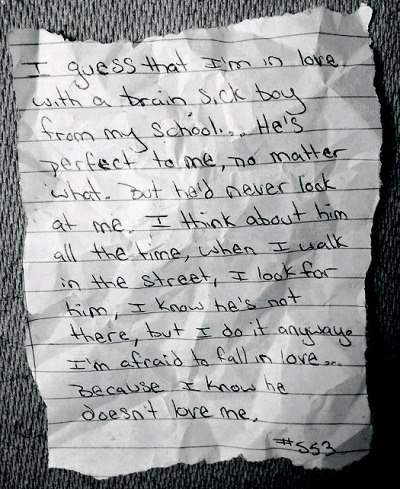 I guess that I'm in love
with a brain sick boy
from my school... He's
perfect to me, no matter
what. But he'd never look
at me. I think about him
all the time, when I walk
in the street, I look for
him, I know he's not
there, but I do it anyway.
I'm afraid to fall in love...
Because I know he
doesn't love me.
#553